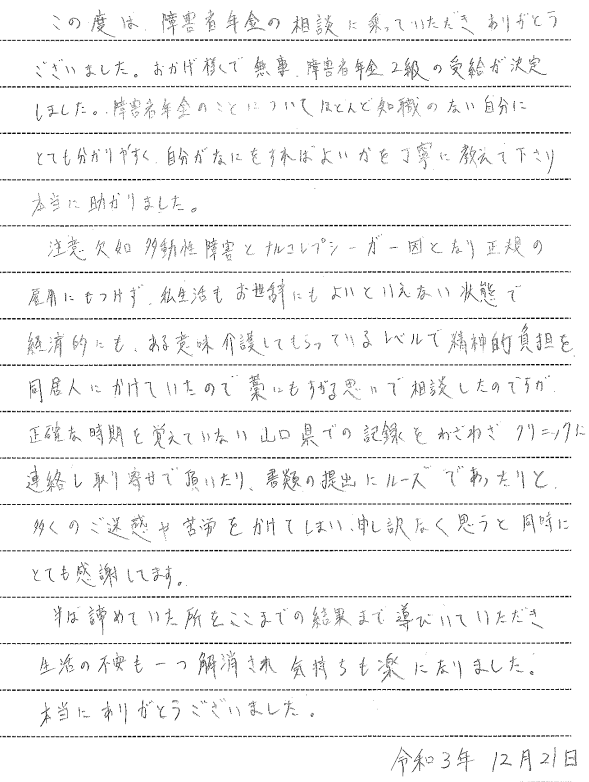 この度は、障害者年金の相談に乗っていただきありがとう
ございました。おかげ様で無事、障害者年金2級の受給が決定
しました。障害者年金のことについてほとんど知職のない自分に
とても分かりやすく、自分がなにをすればよいかを丁寧に教えて下さり
本当に助かりました。
注意欠如多動性障害とナルコレプシーが一因となり正規の
雇用にもつけず、私生活もお世辞にもよいといえない状態で
経済的にも、ある意味介護してもらっているレベルで精神的負担を
同居人にかけていたので藁にもすがる思いで相談したのですが、
正確な時期を覚えていない山口県での記録をわざわざクリニックに
連絡し取り寄せて頂いたり、書類の提出にルーズであったりと、
多くのご迷惑や苦労をかけてしまい、申し訳なく思うと同時に
とても感謝してます。
半ば諦めていた所をここまでの結果まで導びいていただき
生活の不安も一つ解消され気持ちも楽になりました。
本当にありがとうございました。
令和3年 12月21日